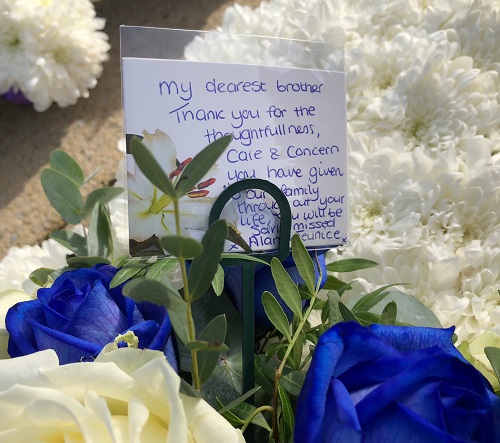 my dearest brother
Thank you for the
thoughtfullness,
Care & Concern
you have given
our family
through out your
life, you will be
missed
Alan Eunice x